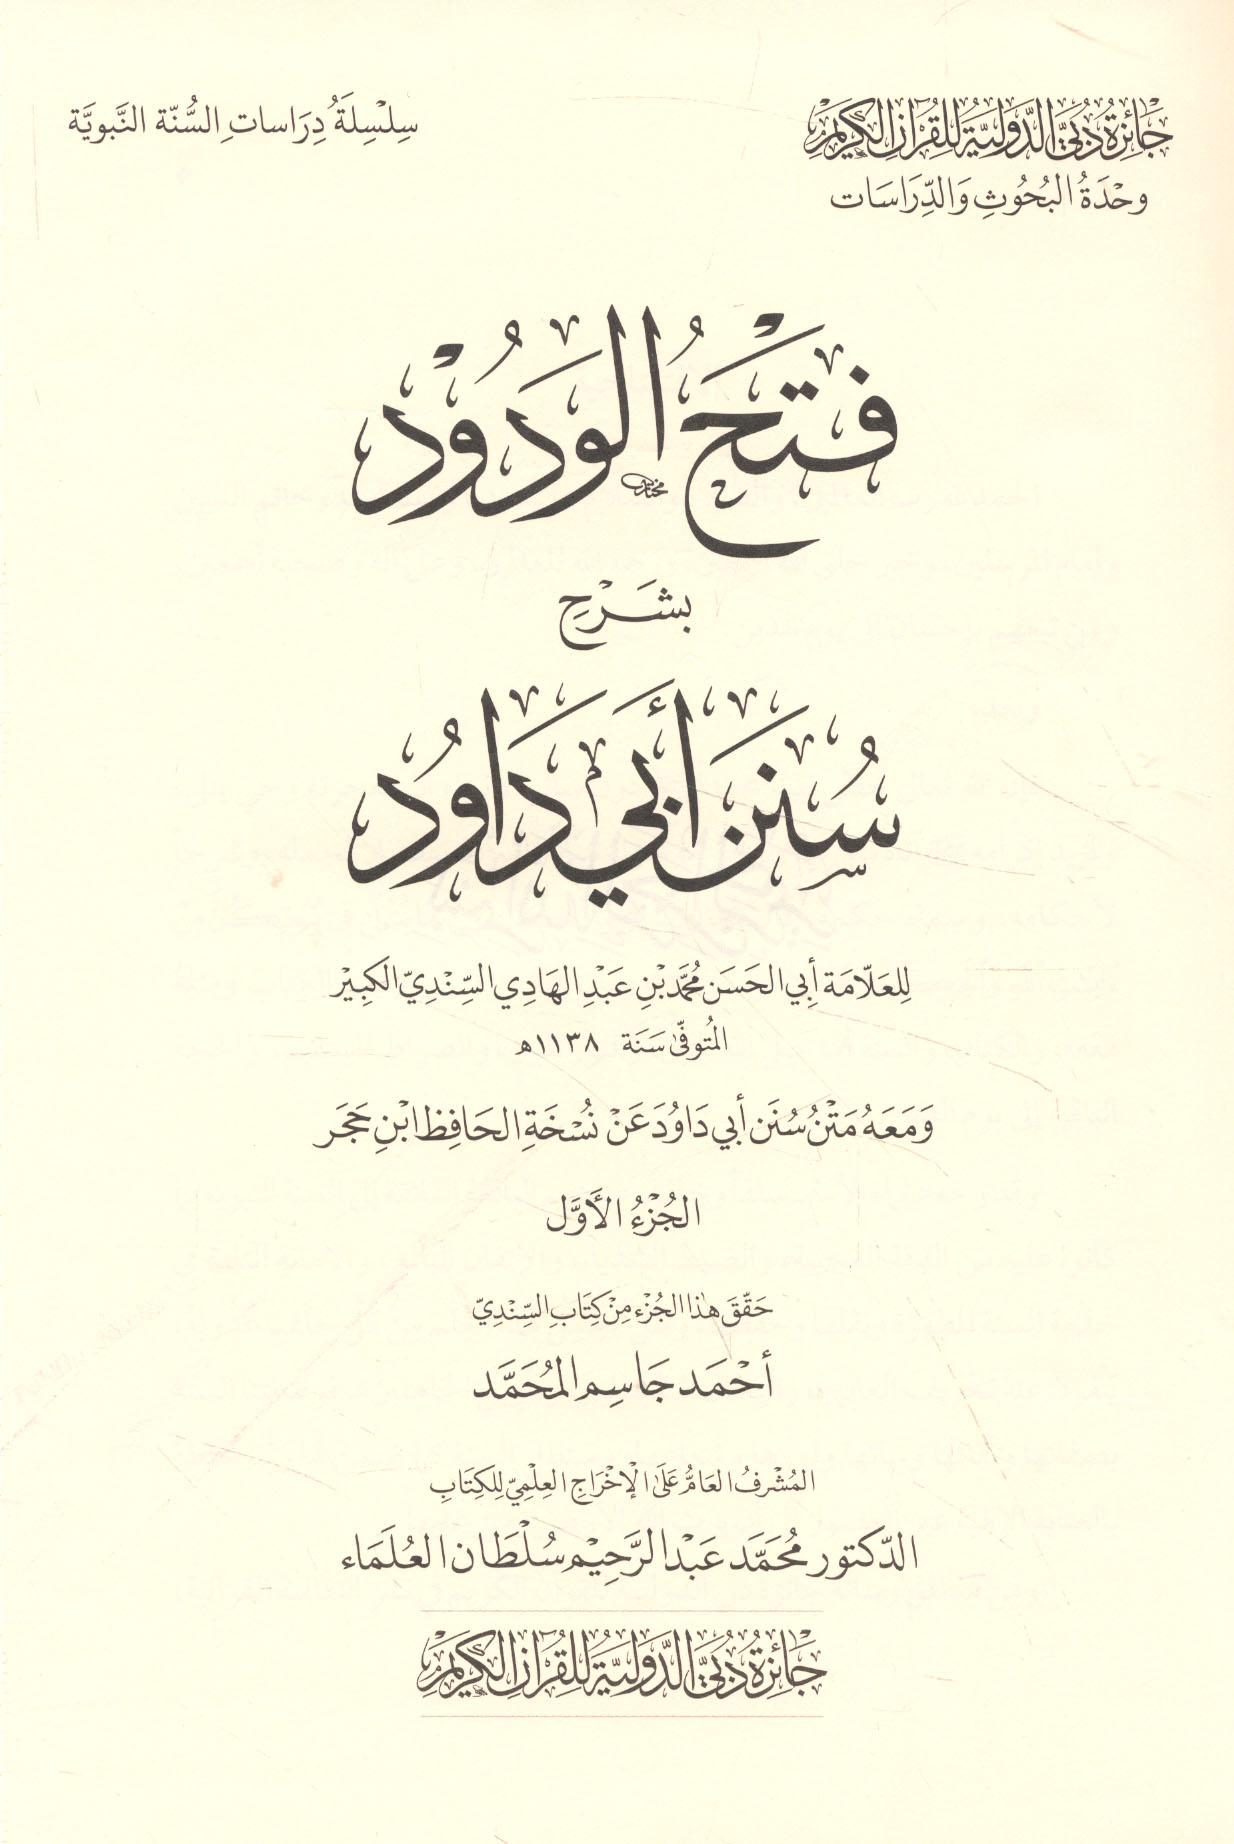 جَائِزَةُ دُبَيّ الدَّوْليَّة لِلقُرْآنِ الكَرِيمِ
وحْدَةُ البُحُوثِ وَالدِّرَاسَات
سِلْسِلَةُ دِرَاساتِ السُّنّة النَّبويَّة
فَتْحُ الوَدُوْدِ
بشَرْحِ
سُنَنِ أَبِي دَاوُد
لِلعَلّامَة أَبِي الحَسَن مُحمَّد بْنِ عَبْدِ الهَادِي السِّنْدِيّ الكَبِيْر
المُتوفّى سَنَة ١١٣٨ ه
وَمَعَهُ مَتْنُ سُنَن أَبي دَاوُدَ عَنْ نُسْخَةِ الحَافِظ ابْنِ حَجَر
الجُزْءُ الأَوَّل
حَقّقَ هذا الجُزْء مِنْ كِتَابِ السِّنْدِيّ
أَحْمَد جَاسِم المُحَمَّد
المُشْرفُ العَامُّ عَلَى الإِخْرَاجِ العِلْمِيّ لِلكِتَابِ
الدّكتور مُحَمَّد عَبْد الرَّحِيْم سُلْطَان العُلَمَاء
جَائِزَةُ دُبَيّ الدَّوْليَّة لِلقُرْآنِ الكَرِيمِ